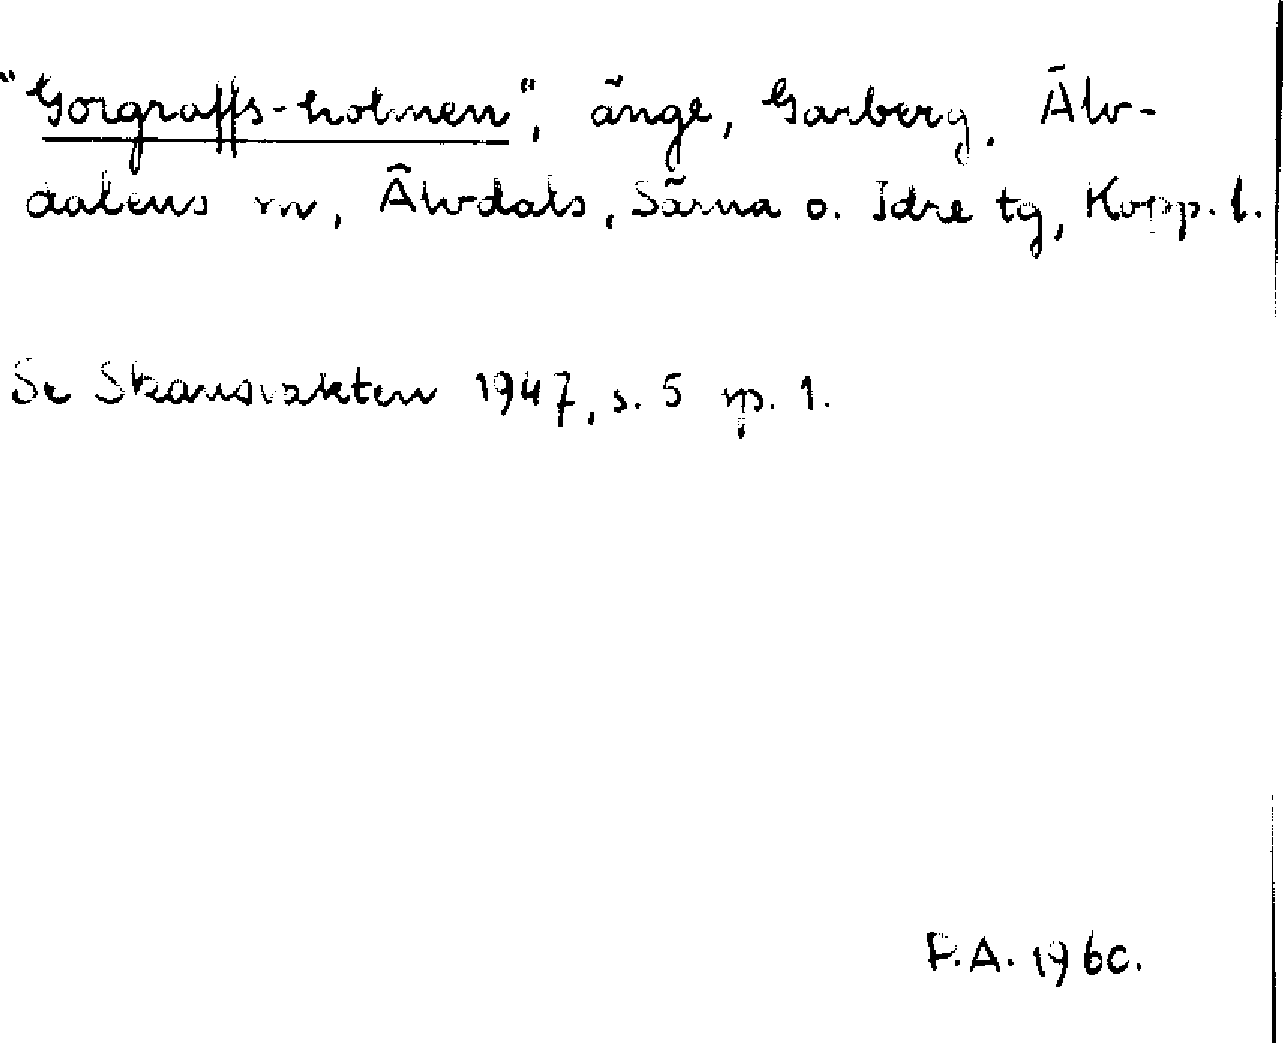 "Gorgraffs-holmen", änge, Garberg, Älv-
dalens sn, Älvdals, Särna o. Idre tg, Kopp. l.
Se Skansvakten 1947, s. 5 sp. 1.
P.A. 1960.